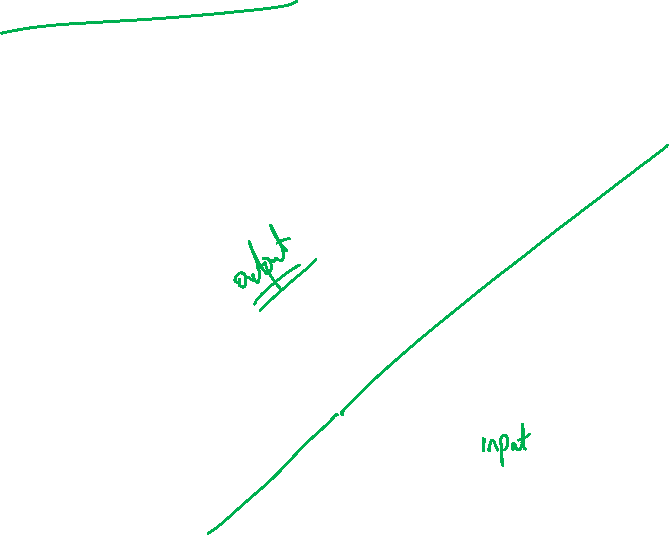 output
input